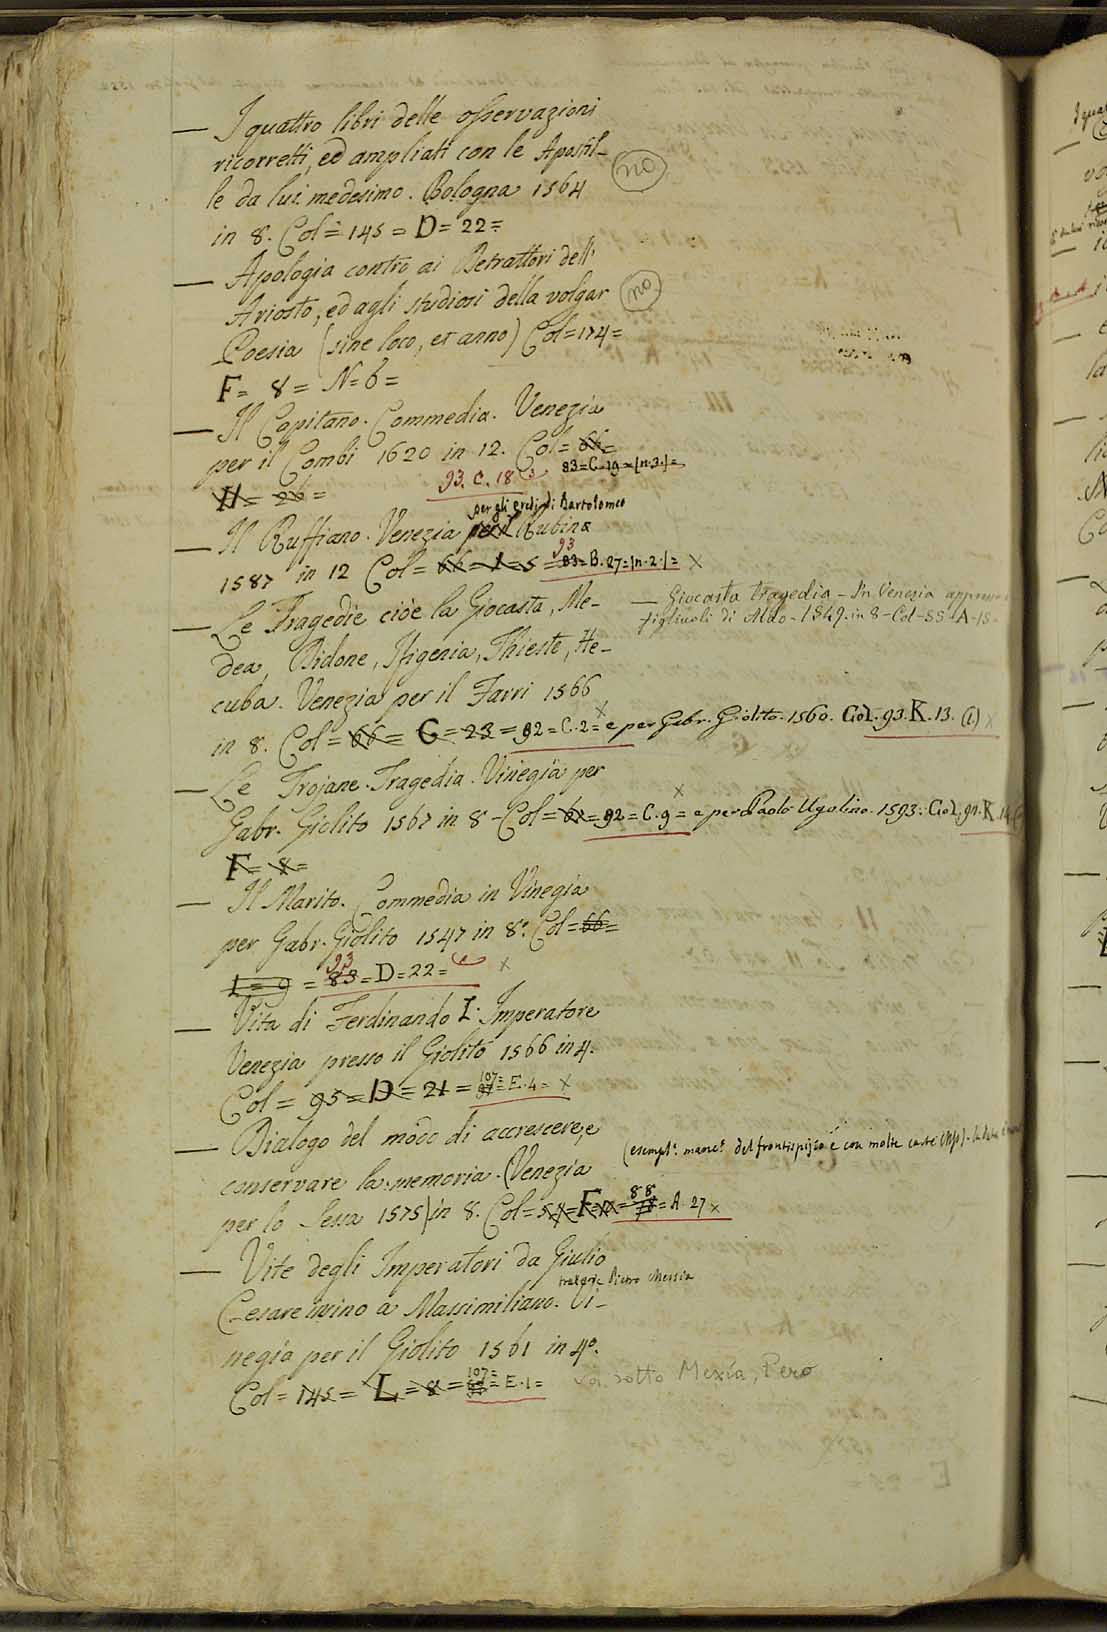 — I quattro libri delle osservazioni
ricorretti, ed ampliati con le Apostil-
le da lui medesimo. Bologna 1564
no
in 8. Col = 145 = D = 22 =
— Apologia contro ai Detrattori dell'
Ariosto, ed agli studiosi della volgar
no
Poesia (sine loco, et anno) Col = 174 =
F = 8 = N = 6 =
— Il Capitano. Commedia. Venezia
per il Combi 1620 in 12. Col = 66 =
83 = C. 19 = [n. 3.] =
H = 26 =
93. C. 18
per gli eredi di Bartolomeo
— Il Ruffiano. Venezia per il Rubina
93
1587 in 12 Col = 66 = I = 5 = 83 = B. 27 = [n. 2.] = X
— Le Tragedie cioè la Giocasta, Me-
— Giocasta tragedia - In Venezia appresso
figliuoli di Aldo - 1549. in 8 - Col - 55 - A - 15 -
dea, Didone, Ifigenia, Thieste, He-
cuba. Venezia per il Farri 1566
in 8. Col = 66 = G = 23 = 92 = C. 2 = X e per Gabr. Giolito. 1560. Col. 93. K. 13. (1) X
— Le Trojane. Tragedia. Vinegia per
Gabr. Giolito 1567 in 8 - Col = 61 = 92 = C. 9 = X e per Paolo Ugolino. 1593. Col. 91. K. 14
F = 8 =
— Il Marito. Commedia in Vinegia
per Gabr. Giolito 1547 in 8º. Col = 66 =
93
I = 9 = 83 = D = 22 = X
— Vita di Ferdinando I. Imperatore
Venezia presso il Giolito 1566 in 4.
107 =
Col = 95 = D = 21 = E. 4 = X
— Dialogo del modo di accrescere, e
(esempl.e manc.e del frontispizio e con molte carte
conservare la memoria. (Venezia
88
per lo Sessa 1575) in 8. Col = 54 = F = = A. 27 X
— Vite degli Imperatori da Giulio
tratte Pietro Messia
Cesare insino a Massimiliano. Vi-
negia per il Giolito 1561 in 4º.
107 =
Col = 145 = L = 8 = E. 1 =
sotto Mexía, Pero